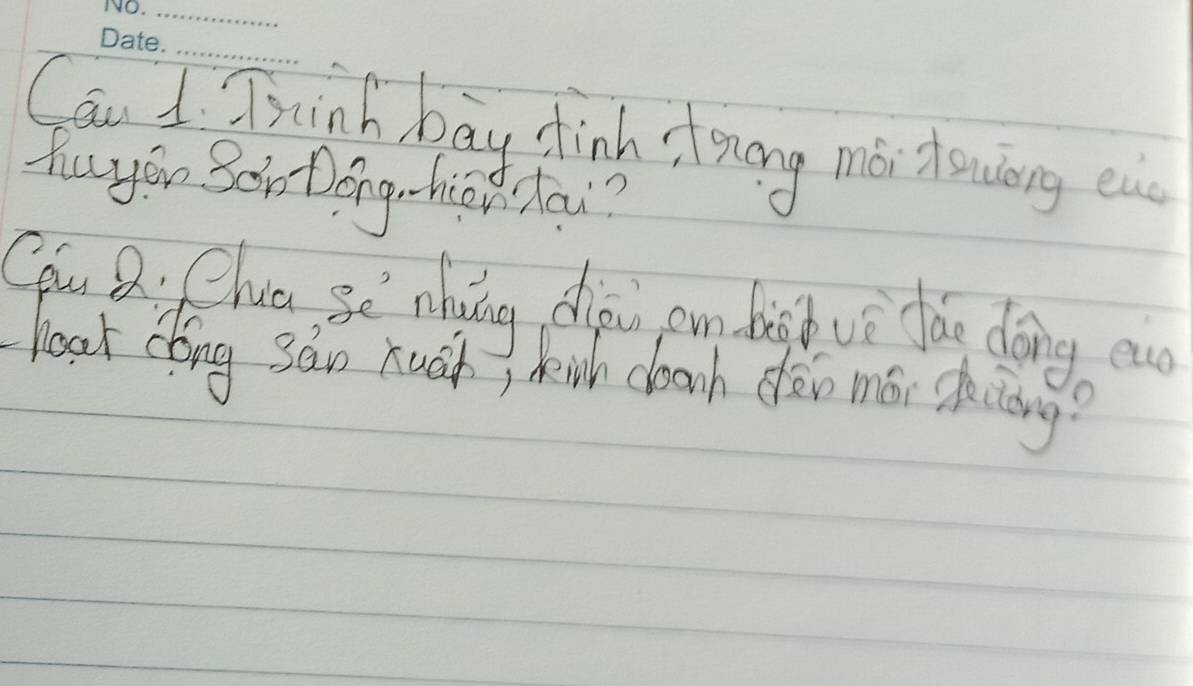 No. ...............
Date. ...............
Câu 1. Trình bày tình trạng môi trường của
huyện Sơn Động hiện tại?
Câu 2. Chia sẻ những điều em biết về tác động của
hoạt động sản xuất, kinh doanh đến môi trường?